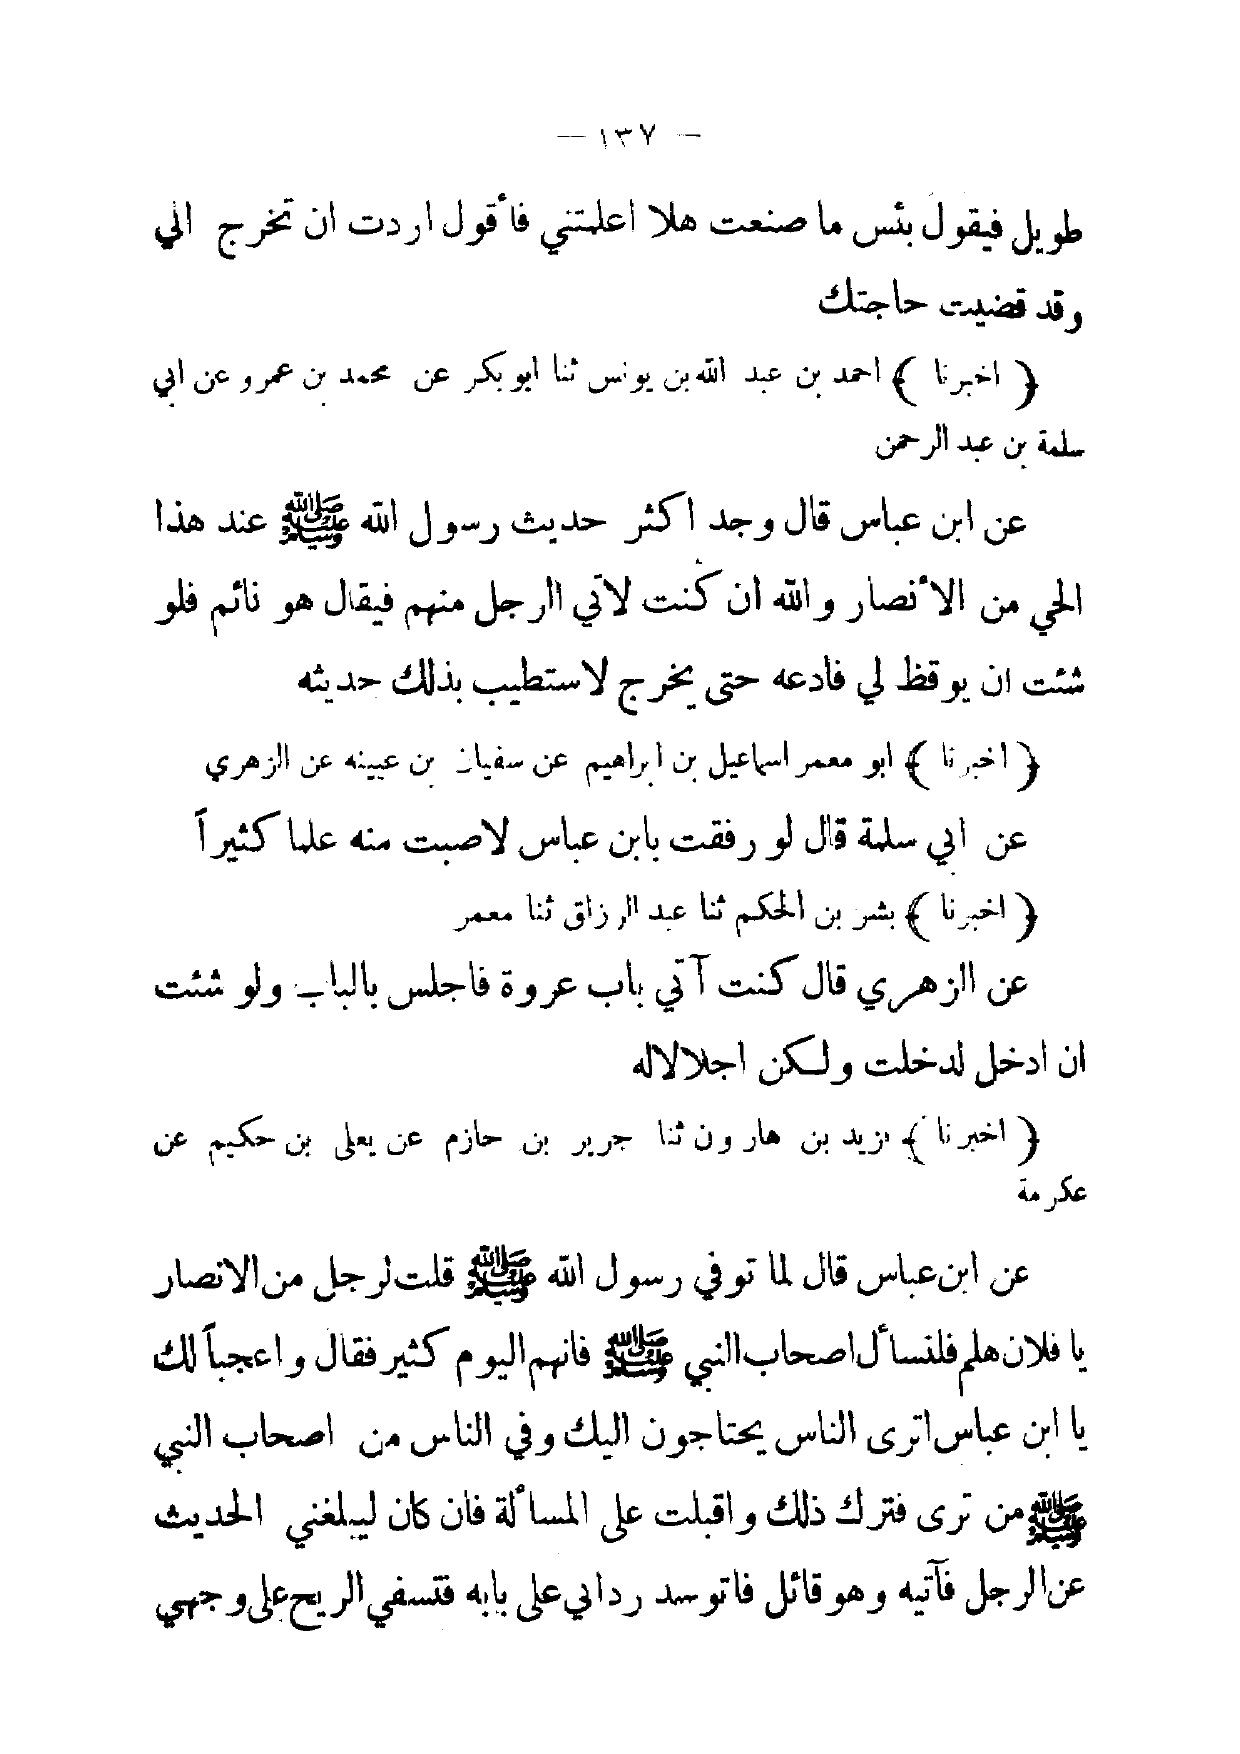 — ١٣٧ —
طويل فيقول بئس ما صنعت هلا اعلمتني فأقول اردت ان تخرج الي
وقد قضيت حاجتك
﴿ اخبرنا ﴾ احمد بن عبد الله بن يونس ثنا ابو بكر عن محمد بن عمرو عن ابي
سلمة بن عبد الرحمن
عن ابن عباس قال وجد اكثر حديث رسول الله ﷺ عند هذا
الحي من الأنصار والله ان كنت لآتي الرجل منهم فيقال هو نائم فلو
شئت ان يوقظ لي فادعه حتى يخرج لاستطيب بذلك حديثه
﴿ اخبرنا ﴾ ابو معمر اسماعيل بن ابراهيم عن سفيان بن عيينه عن الزهري
عن ابي سلمة قال لو رفقت بابن عباس لاصبت منه علما كثيراً
﴿ اخبرنا ﴾ بشر بن الحكم ثنا عبد الرزاق ثنا معمر
عن الزهري قال كنت آتي باب عروة فاجلس بالباب ولو شئت
ان ادخل لدخلت ولكن اجلالا له
﴿ اخبرنا ﴾ يزيد بن هارون ثنا جرير بن حازم عن يعلى بن حكيم عن
عكرمة
عن ابن عباس قال لما توفي رسول الله ﷺ قلت لرجل من الانصار
يا فلان هلم فلنسأل اصحاب النبي ﷺ فانهم اليوم كثير فقال واعجباً لك
يا ابن عباس اترى الناس يحتاجون اليك وفي الناس من اصحاب النبي
ﷺ من ترى فترك ذلك واقبلت على المسألة فان كان ليبلغني الحديث
عن الرجل فآتيه وهو قائل فاتوسد ردائي على بابه فتسفي الريح على وجهي